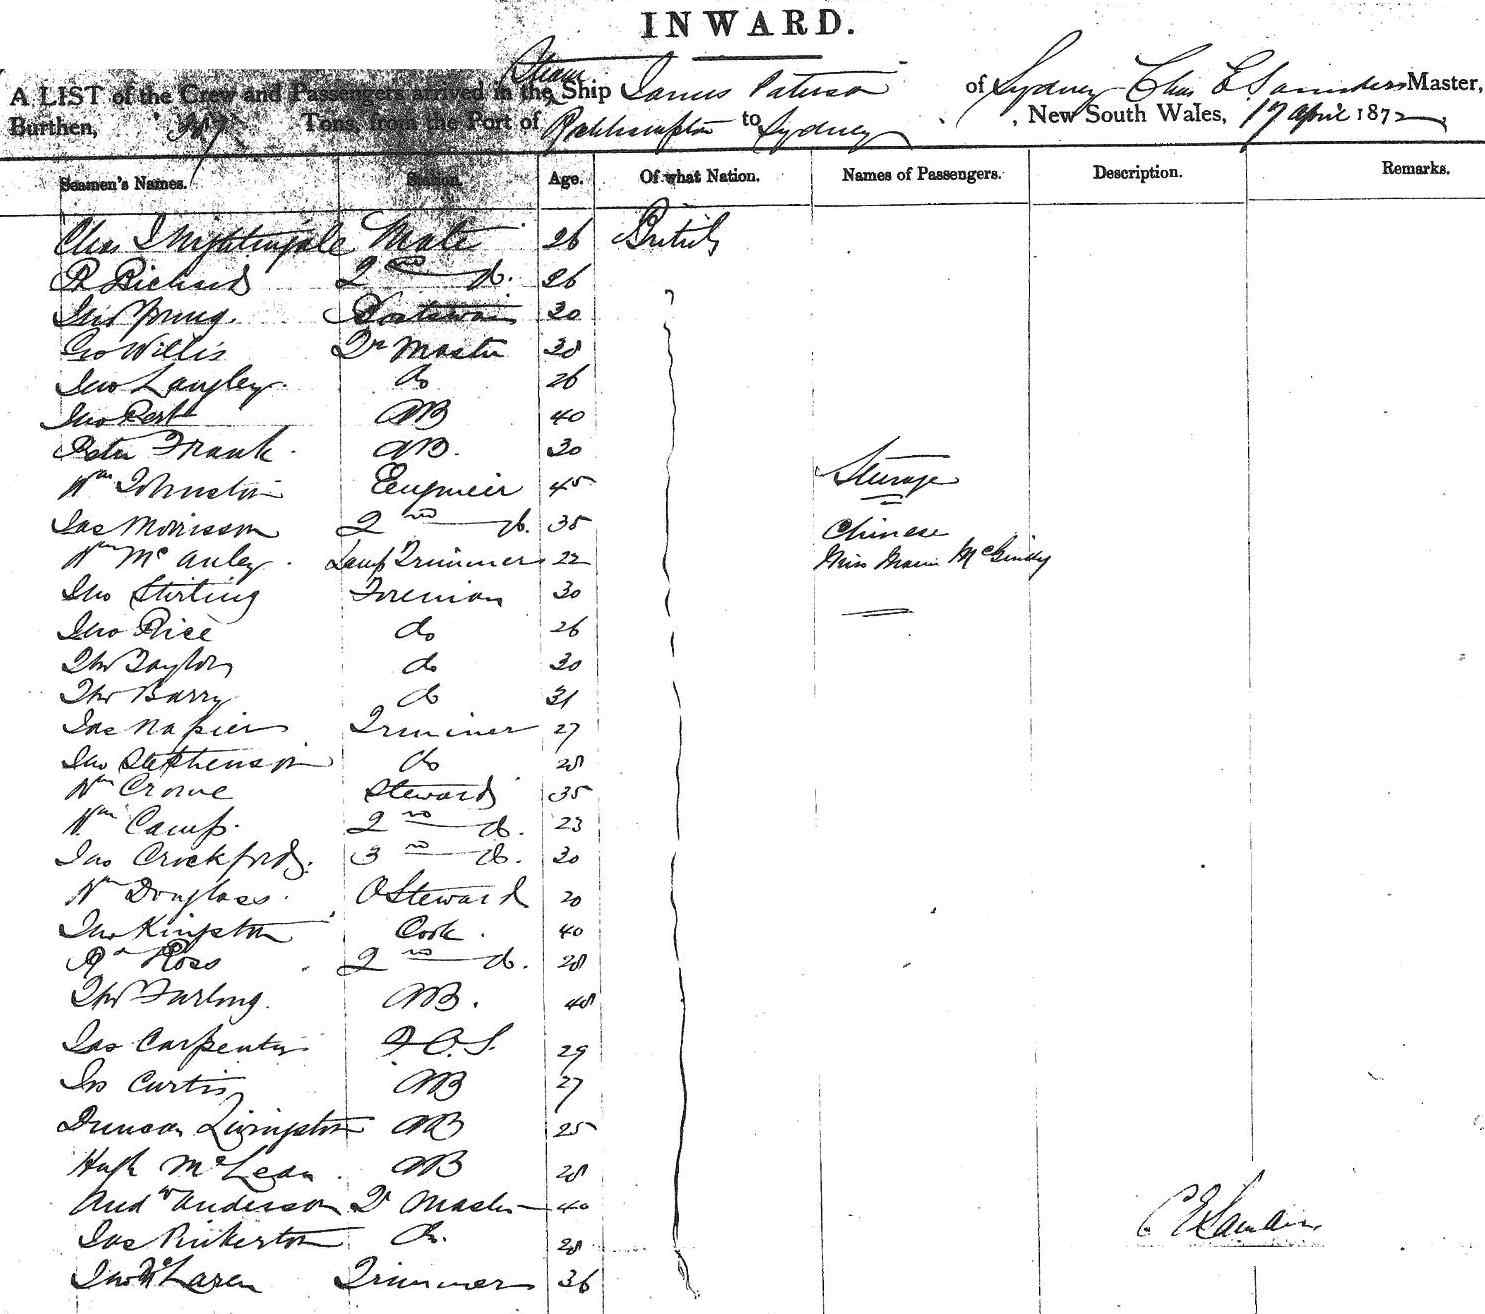 INWARD.
A LIST of the Crew and Passengers arrived in the Steam Ship James Paterson of Sydney Chas E Saunders Master,
Burthen, Tons, from the Port of Rockhampton to Sydney, New South Wales, 17 April 1872
Seamen's Names. Station. Age. Of what Nation. Names of Passengers. Description. Remarks.
Chas I Nightingale Mate 26 British
R Richards 2nd do. 26
Jno Young. Boatswain 30
Geo Willis Qr Master 38
Jno Langley. do 26
Jno AB 40
Peter Frank. AB. 30
Wm Johnston Engineer 45 Steerage
Jas Morrisson 2nd do. 35 Chinese
Wm McAuley. Lamp Trimmer 22 Miss McGinley
Jno Stirling Foreman 30
Jno Rice do 26
Thos Taylor do 30
Thos Barry do 31
Jas Napier Trimmer 27
Jno Stephenson do 28
Wm Crowe Steward 35
Wm Camp. 2nd do. 23
Jas Crockford. 3rd do. 30
Wm Douglass. O Steward 20
Jno Kingston Cook. 40
Rd Ross 2nd do. 28
Thos Furlong. AB. 48
Jas Carpenter F.O.S. 29
Jno Curtis AB 27
Duncan Livingston AB 25
Hugh McLean. AB 28
Andw Anderson Qr Master 40 C E Saunders
Jas Pinkerton do. 28
Jno McLaren Trimmer 36